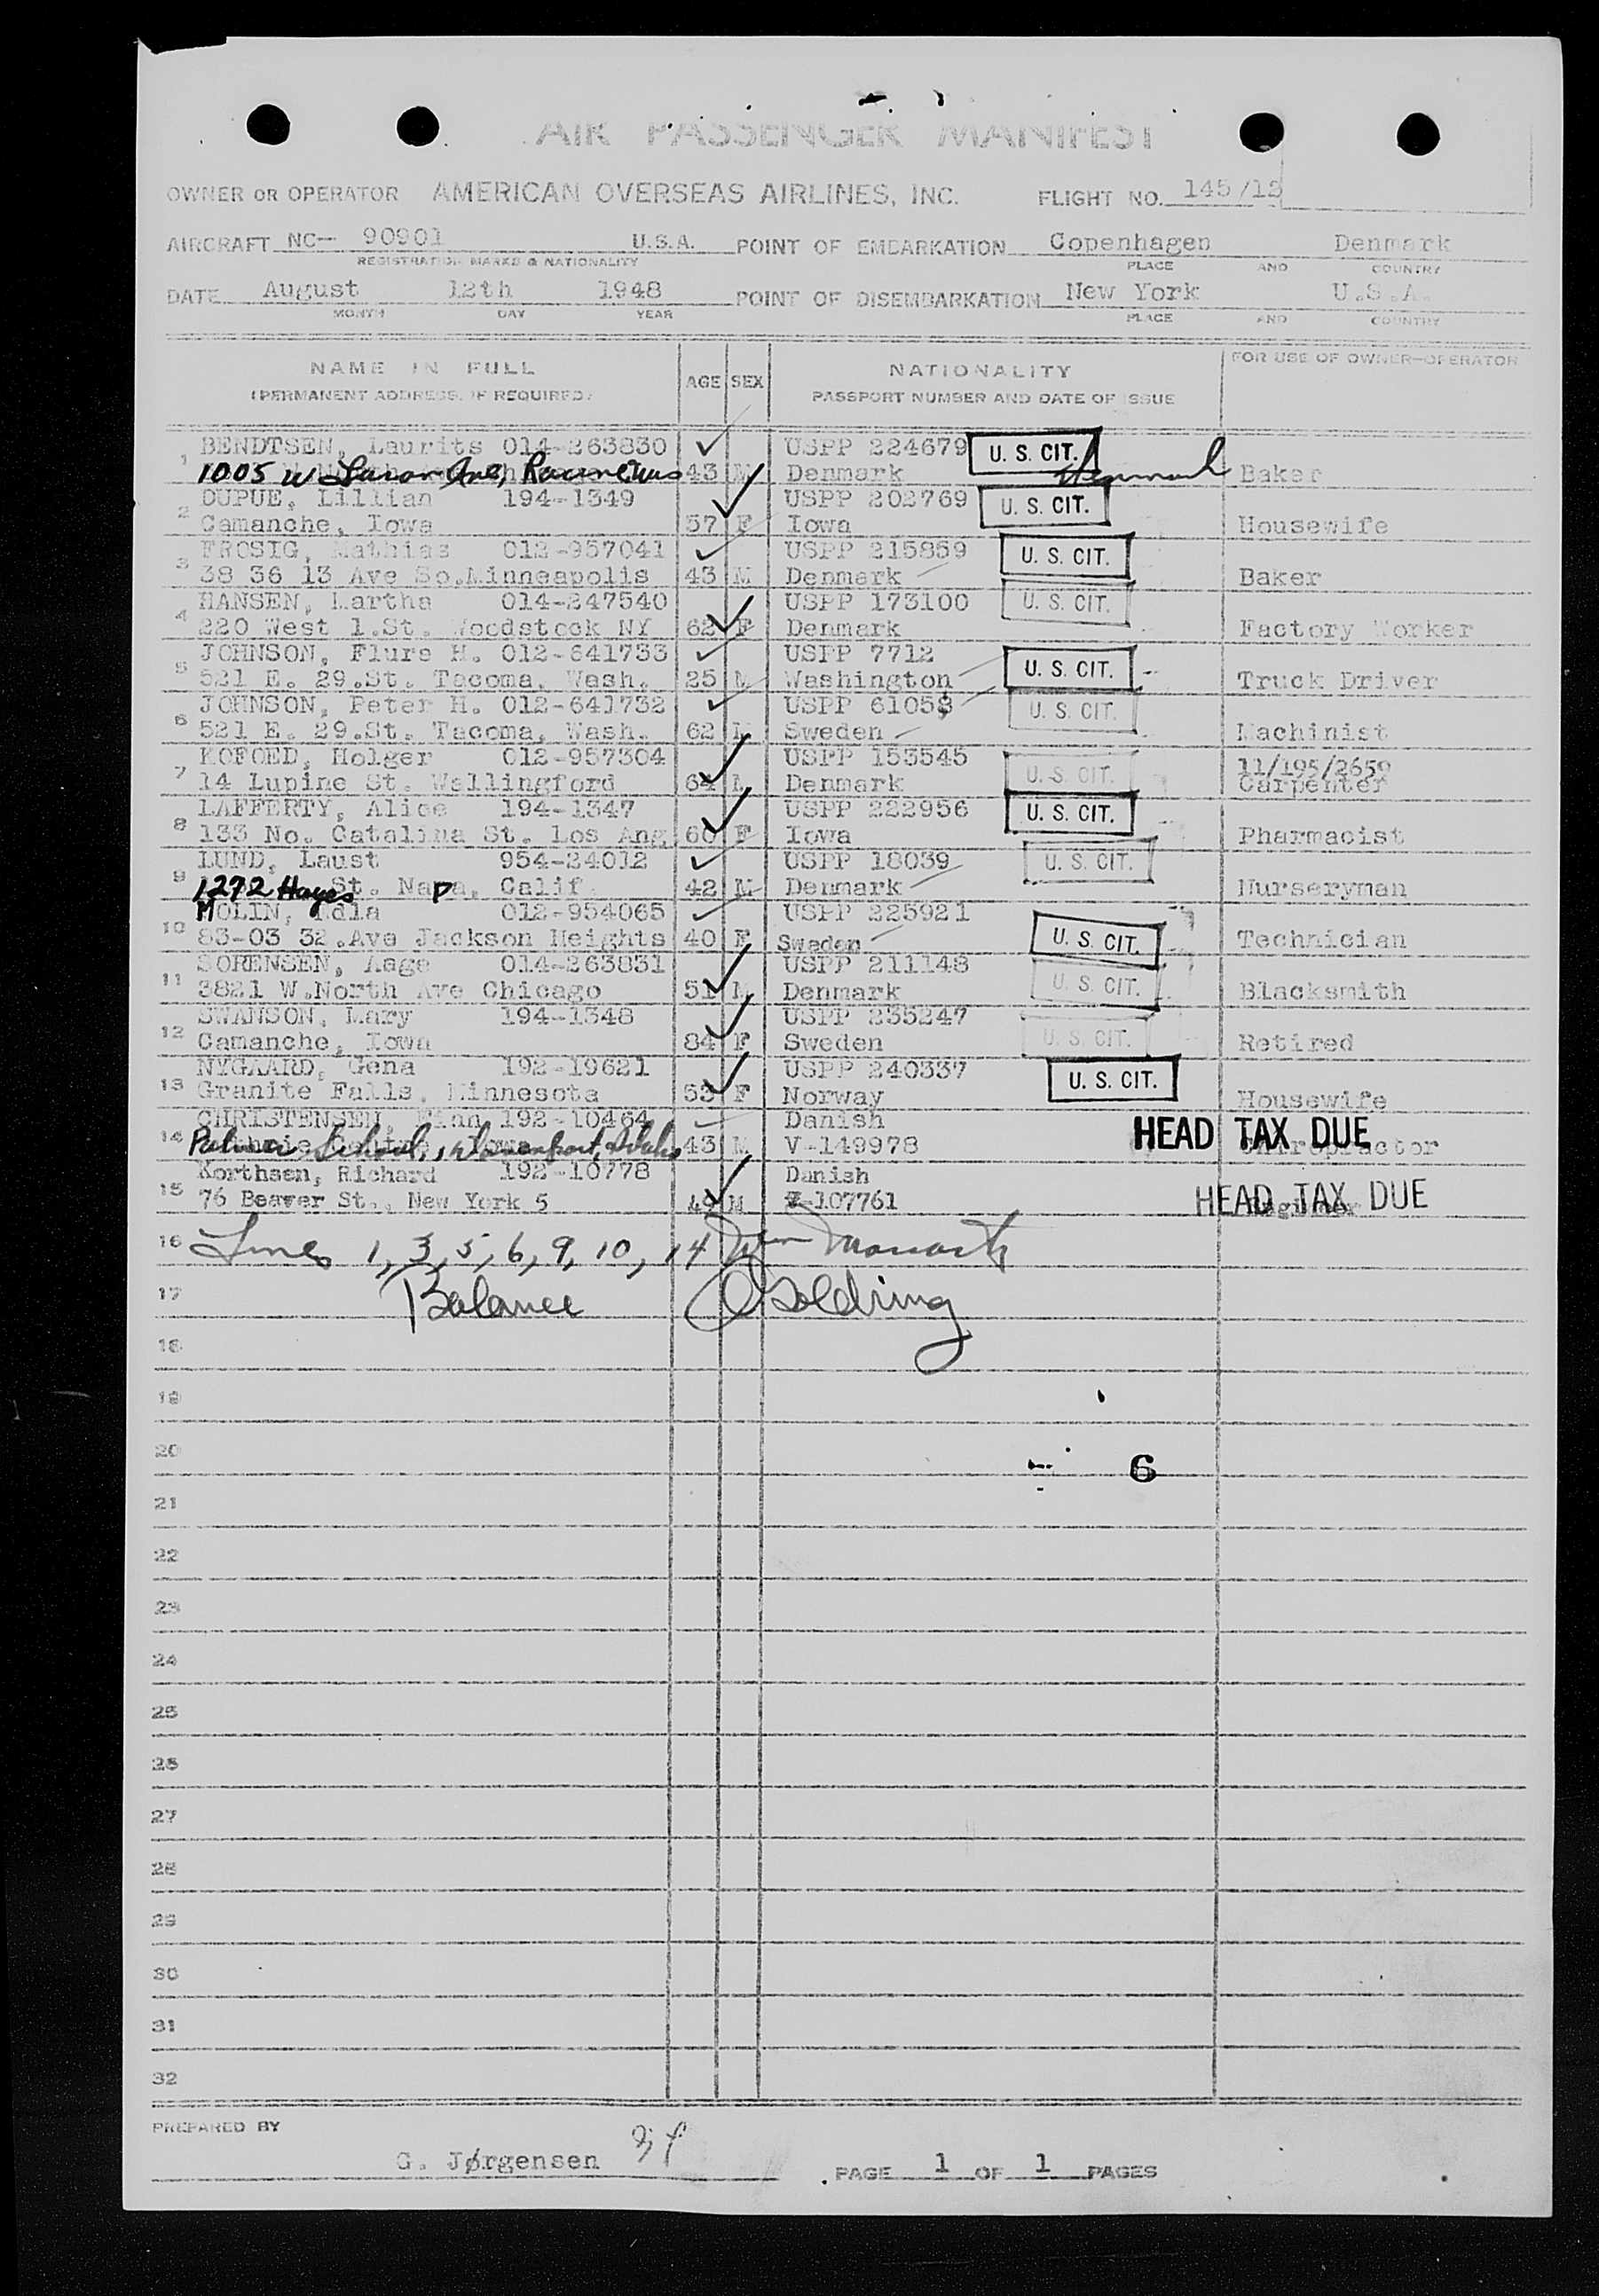 AIR PASSENGER MANIFEST
OWNER OR OPERATOR AMERICAN OVERSEAS AIRLINES, INC. FLIGHT NO. 145/13
AIRCRAFT NC- 90901 U.S.A. POINT OF EMBARKATION Copenhagen Denmark
REGISTRATION MARKS & NATIONALITY PLACE AND COUNTRY
DATE August 12th 1948 POINT OF DISEMBARKATION New York U.S.A.
MONTH DAY YEAR PLACE AND COUNTRY
NAME IN FULL AGE SEX NATIONALITY FOR USE OF OWNER-OPERATOR
(PERMANENT ADDRESS, IF REQUIRED) PASSPORT NUMBER AND DATE OF ISSUE
1 BENDTSEN, Laurits 014-263830 USPP 224679 U. S. CIT.
1005 W Ave, 43 M Denmark Baker
2 DUPUE, Lillian 194-1349 USPP 202769 U. S. CIT.
Camanche, Iowa 57 F Iowa Housewife
3 FROSIG, Mathias 012-957041 USPP 215859 U. S. CIT.
38 36 13 Ave So.Minneapolis 43 M Denmark Baker
4 HANSEN, Martha 014-247540 USPP 173100 U. S. CIT.
220 West 1.St. Woodstock NY 62 F Denmark Factory Worker
5 JOHNSON, Flure H. 012-641733 USPP 7712 U. S. CIT.
521 E. 29.St. Tacoma, Wash. 25 M Washington Truck Driver
6 JOHNSON, Peter H. 012-641732 USPP 61058 U. S. CIT.
521 E. 29.St. Tacoma, Wash. 62 M Sweden Machinist
7 KOFOED, Holger 012-957304 USPP 153545 U. S. CIT. 11/195/2659
14 Lupine St. Wallingford 64 M Denmark Carpenter
8 LAFFERTY, Alice 194-1347 USPP 222956 U. S. CIT.
133 No. Catalina St. Los Ang. 60 F Iowa Pharmacist
9 LUND, Laust 954-24012 USPP 18039 U. S. CIT.
1272 Hayes St. Napa, Calif. 42 M Denmark Nurseryman
10 MOLIN, Edla 012-954065 USPP 225921 U. S. CIT.
83-03 32.Ave Jackson Heights 40 F Sweden Technician
11 SORENSEN, Aage 014-263831 USPP 211148 U. S. CIT.
3821 W.North Ave Chicago 51 M Denmark Blacksmith
12 SWANSON, Mary 194-1348 USPP 235247 U. S. CIT.
Camanche, Iowa 84 F Sweden Retired
13 NYGAARD, Gena 192-19621 USPP 240337 U. S. CIT.
Granite Falls, Minnesota 53 F Norway Housewife
14 CHRISTENSEN, 192-10464 Danish HEAD TAX DUE
Palmer School, 43 M V-149978 Chiropractor
15 Korthsen, Richard 192-10778 Danish HEAD TAX DUE
76 Beaver St., New York 5 49 M 107761
16 Lines 1, 3, 5, 6, 9, 10, 14
17 Balance Goldring
18
19
20
6
21
22
23
24
25
26
27
28
29
30
31
32
PREPARED BY
G. Jørgensen PAGE 1 OF 1 PAGES